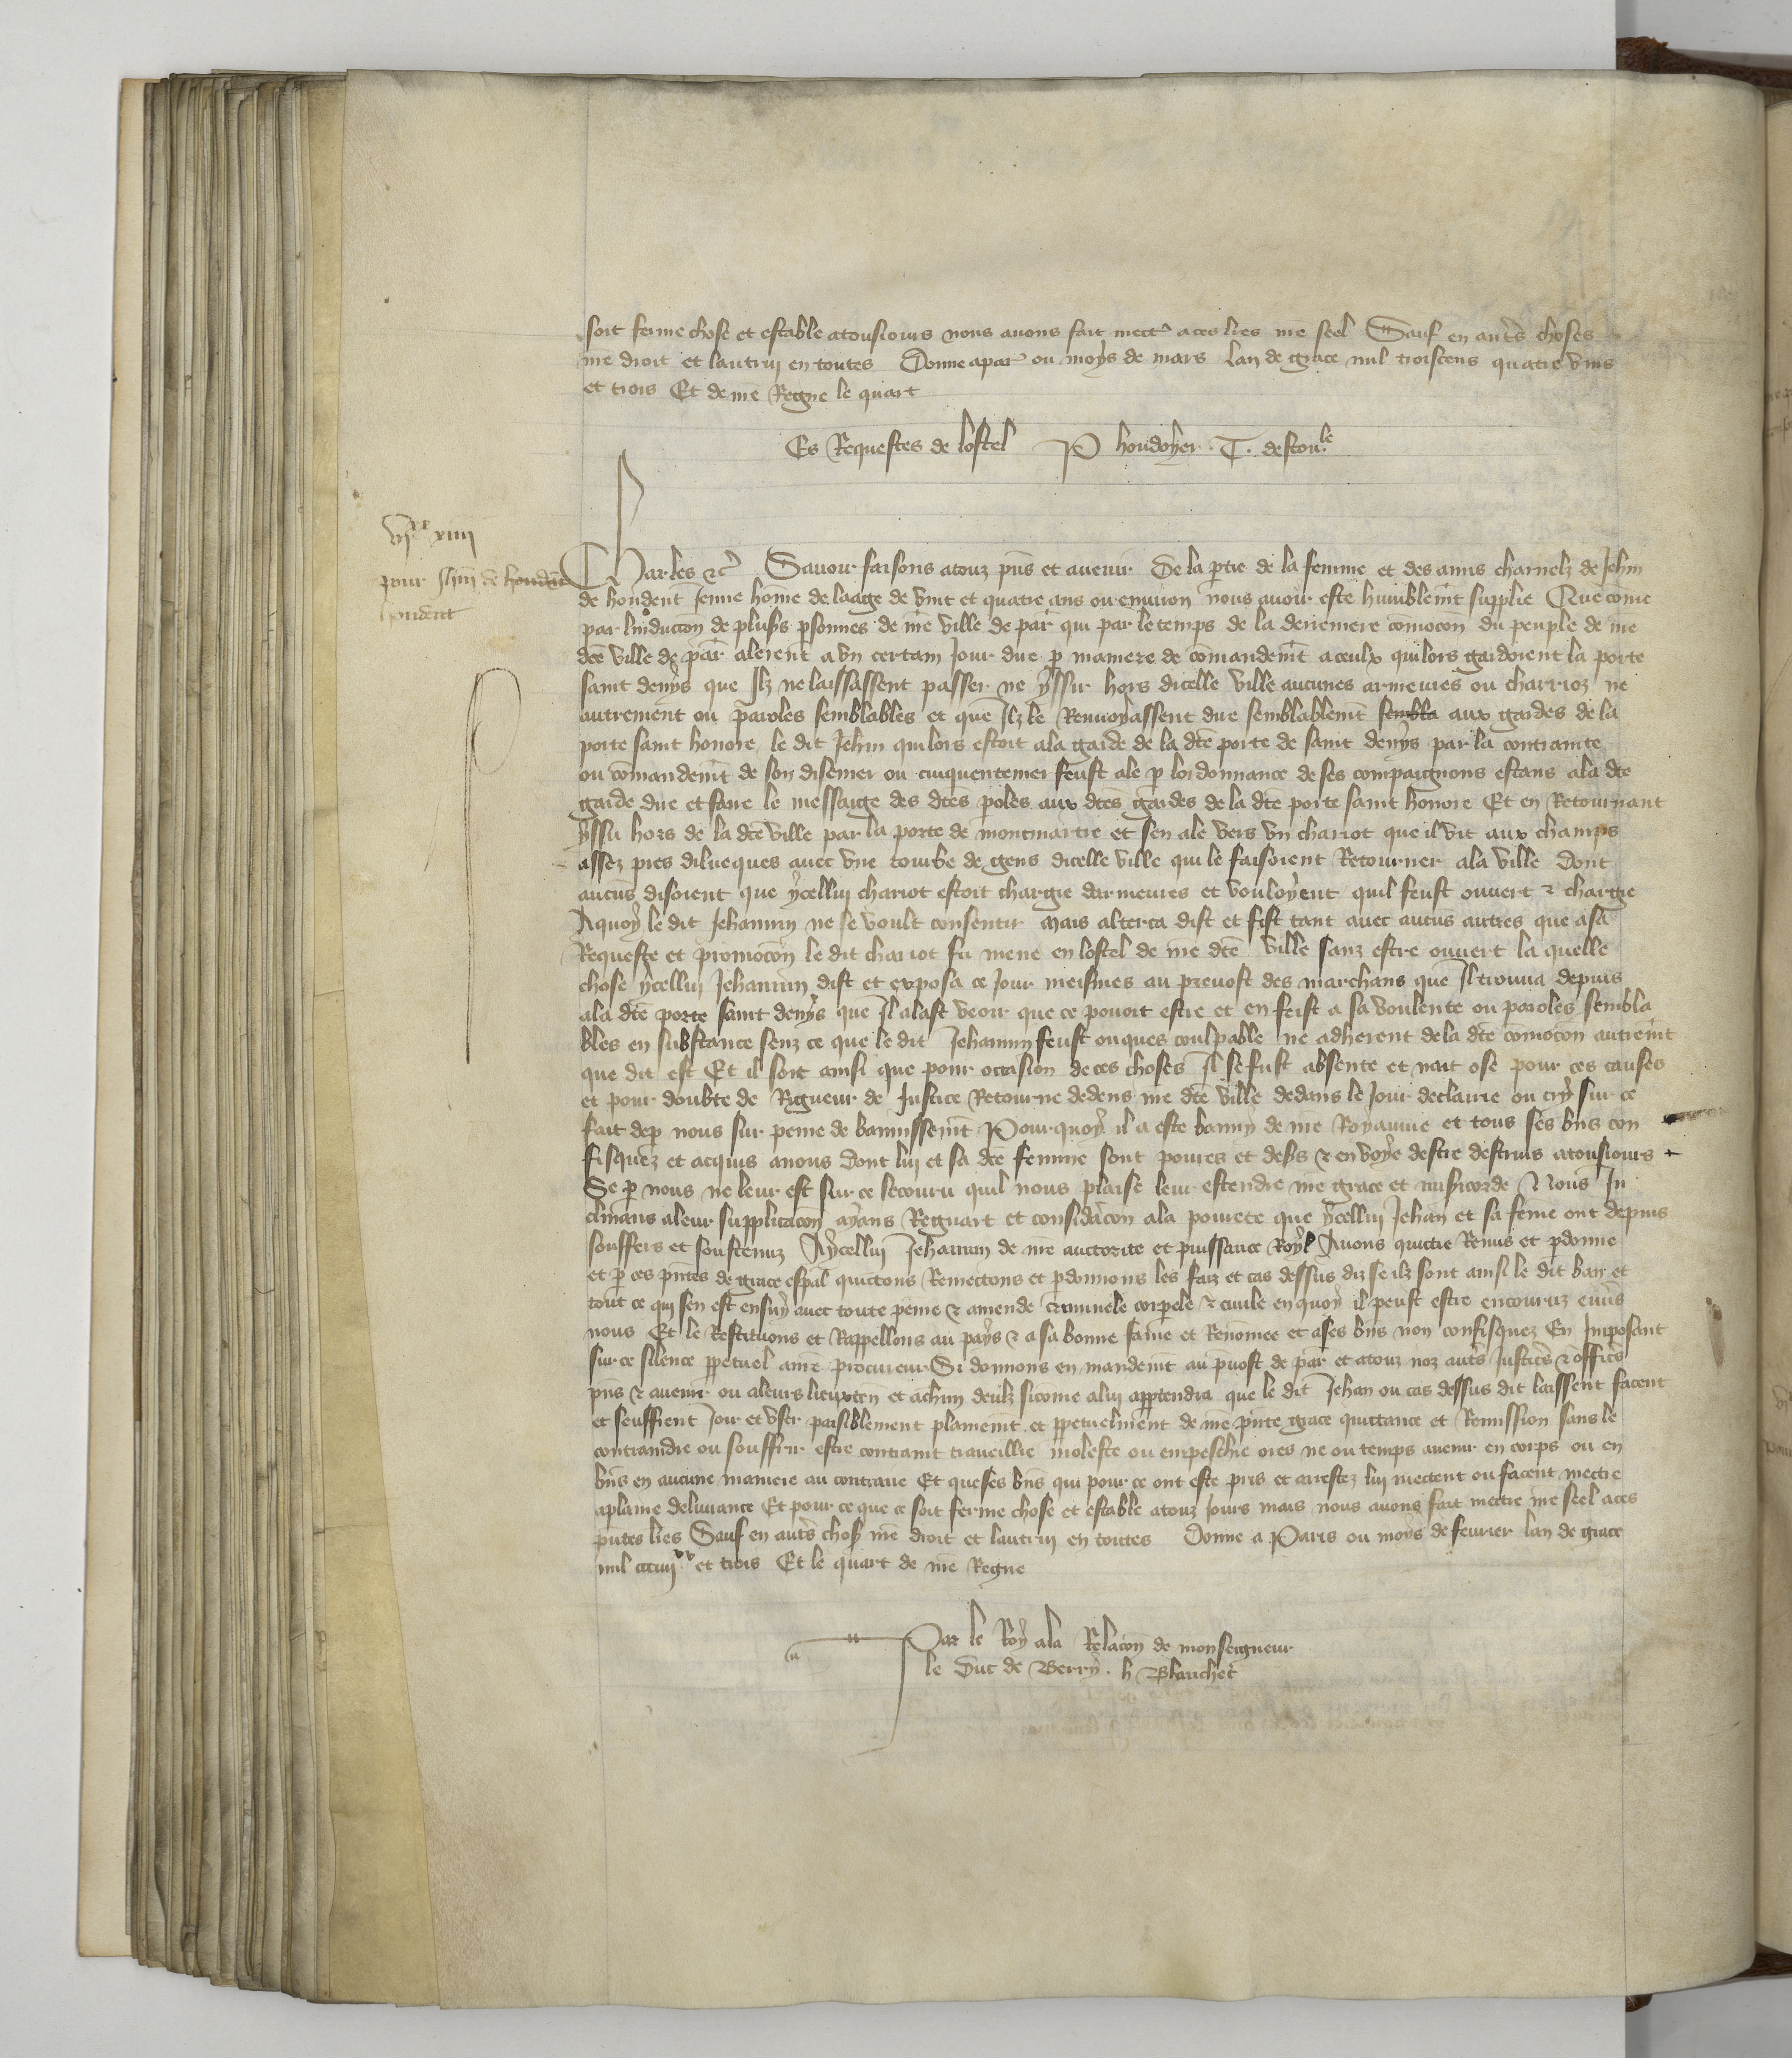 soit ferme chose et estable atousiours nous auons fait mectre a ces lres nre seel Sauf en autres choses
nre droit et lautruy en toutes Donne a par ou moys de mars lan de grace mil troiscens quatre vins
et trois Et de nre Regne le quart
Es Requestes de lostel P houdoyer . T . destou le
vjxx xiiij
pour Jehan de houdent
houdent
Charles etc Sauoir faisons a touz pns et auenir De la partie de la femme et des amis charnelz de Jehn
de houdent jeune home de laage de vint et quatre ans ou enuiron nous auoir este humblemt supplie Que come
par linduccon de plusrs psonnes de nre ville de par qui par le temps de la derreniere comocon du peuple de nre
dce ville de par alerent a vn certain jour dire p maniere de comandemt a ceulx qui lors gardoient la porte
saint denys que Ilz ne laissassent passer ne yssir hors dicelle ville aucunes armeures ou charrioz ne
autrement ou paroles semblables et que Ilz le Renuoyassent dire semblablemt sembla aux gardes de la
porte saint honore le dit Jehn qui lors estoit ala garde de la dce porte de saint denys par la contrainte
ou comandemt de son disenier ou cinquantenier feust ale p lordonnance de ses compaignons estans ala dce
garde dire et faire le messaige des dces poles aux dces gardes de la dce porte saint honore Et en Retournant
yssu hors de la dce ville par la porte de montmartre et sen ale vers vn chariot que il vit aux champs
assez pres dilueques auec vne tourbe de gens dicelle ville qui le faisoient Retourner ala ville dont
aucuns disoient que ycellui chariot estoit chargie darmeures et vouloyent quil feust ouuert et chargie
Aquoy le dit Jehannin ne se voult consentir mais alterca dist et fist tant auec aucus autres que a sa
Requeste et promocon le dit chariot fu mene en lostel de nre dce ville sanz estre ouuert la quelle
chose ycellui Jehannin dist et exposa ce jour meismes au preuost des marchans que Il trouua depuis
ala dce porte saint denys que Il alast veoir que ce pouoit estre et en feist a sa voulente ou paroles sembla
bles en substance senz ce que le dit Jehannin feust onques coulpable ne adherent de la dce comocon autremt
que dit est Et il soit ainsi que pour occasion de ces choses Il se fust absente et nait ose pour ces causes
et pour doubte de Rigueur de Justice Retourne dedens nre dce ville dedans le jour declaire ou cry sur ce
fait de p nous sur peine de bannissemt Pourquoy il a este banny de nre Royaume et tous ses bns con
fisquez et acquis a nous dont lui et sa dce femme sont poures et desrs et en voye destre destruis atousiours
Se p nous ne leur est sur ce secouru quil nous plaise leur estendre nre grace et misicorde Nous In
clinans aleur supplicacon ayans Reguart et considacon ala pourete que ycellui Jehan et sa feme ont depuis
souffers et soustenuz Aycellui Jehannin de nre auctorite et puissance Royl Auons quictie Remis et pdonne
et p ces pntes de grace espal quictons Remectons et pdonnons les faiz et cas dessus diz se ilz sont ainsi le dit ban et
tout ce qui sen est ensuy auec toute peine et amende criminele corpele et ciuile en quoy il peust estre encouruz enus
nous Et le Restituons et Rappellons au pays et a sa bonne fame et Renomee et a ses bns non confisquez En Imposant
sur ce silence ppetuel a nre procureur Si donnons en mandemt au puost de par et atouz noz autrs justices et offics
pns et auenir ou aleurs lieuxten et achun deulz sicome a lui appartendra que le dit Jehan ou cas dessus dit laissent facent
et seuffrent joir et vser paisiblement plainemt et ppetuelment de nre pnte grace quictance et Remission sans le
contraindre ou souffrir estre contraint traueillie moleste ou empeschie ores ne ou temps auenir en corps ou en
bns en aucune maniere au contraire Et que ses bns qui pour ce ont este pris et arrestez lui mectent ou facent mectre
aplaine deliurance Et pour ce que ce soit ferme chose et estable atouz jours mais nous auons fait mectre nre seel a ces
pntes lres Sauf en autrs chos nre droit et lautruy en toutes Donne a Paris ou moys de feurier lan de grace
mil ccciiijxx et trois Et le quart de nre Regne
Par le Roy ala Relacon de monseigneur
le Duc de Berry . h Blanchet